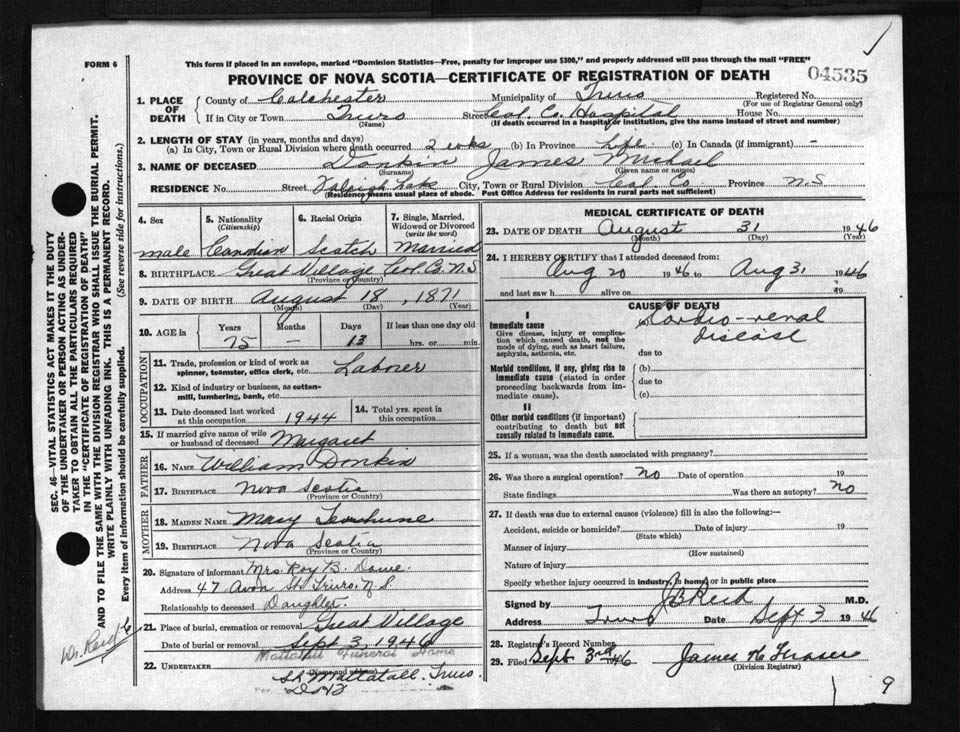 FORM 6
This form if placed in an envelope, marked "Dominion Statistics—Free, penalty for improper use $300," and properly addressed will pass through the mail "FREE"
PROVINCE OF NOVA SCOTIA—CERTIFICATE OF REGISTRATION OF DEATH
04535
1. PLACE OF DEATH
County of Colchester Municipality of Truro Registered No.
(For use of Registrar General only)
If in City or Town Truro Street Col. Co. Hospital House No.
(Name) (If death occurred in a hospital or institution, give the name instead of street and number)
2. LENGTH OF STAY (in years, months and days)
(a) In City, Town or Rural Division where death occurred 2 wks (b) In Province Life (c) In Canada (if immigrant) -
3. NAME OF DECEASED Donkin James Michael
(Surname) (Given name or names)
RESIDENCE No. Street City, Town or Rural Division Col. Co Province N.S
(Residence means usual place of abode. Post Office Address for residents in rural parts not sufficient)
4. Sex male
5. Nationality (Citizenship) Canadian
6. Racial Origin Scotch
7. Single, Married, Widowed or Divorced (write the word) Married
8. BIRTHPLACE Great Village Col. Co. N.S
(Province or Country)
9. DATE OF BIRTH August 18, 1871
(Month) (Day) (Year)
10. AGE in Years Months Days If less than one day old
75 — 13 hrs. or min.
OCCUPATION
11. Trade, profession or kind of work as spinner, teamster, office clerk, etc. Laborer
12. Kind of industry or business, as cotton-mill, lumbering, bank, etc.
13. Date deceased last worked at this occupation 1944
14. Total yrs. spent in this occupation
15. If married give name of wife or husband of deceased Margaret
FATHER
16. NAME William Donkin
17. BIRTHPLACE Nova Scotia
(Province or Country)
MOTHER
18. MAIDEN NAME Mary
19. BIRTHPLACE Nova Scotia
(Province or Country)
20. Signature of informant Mrs. Roy B. Dowe.
Address 47 Avon St Truro, N.S.
Relationship to deceased Daughter.
21. Place of burial, cremation or removal Great Village
Date of burial or removal Sept 3, 1946
Mattatall Funeral Home
22. UNDERTAKER
Mattatall. Truro.
Per
MEDICAL CERTIFICATE OF DEATH
23. DATE OF DEATH August 31 1946
(Month) (Day) (Year)
24. I HEREBY CERTIFY that I attended deceased from:
Aug 20 1946 to Aug 31 1946
and last saw h alive on 19
CAUSE OF DEATH
I
Immediate cause
Give disease, injury or complication which caused death, not the mode of dying, such as heart failure, asphyxia, asthenia, etc.
(a) Cardio-renal
Disease
due to
Morbid conditions, if any, giving rise to immediate cause (stated in order proceeding backwards from immediate cause).
(b)
due to
(c)
II
Other morbid conditions (if important) contributing to death but not causally related to immediate cause.
25. If a woman, was the death associated with pregnancy?
26. Was there a surgical operation? No Date of operation 19
State findings Was there an autopsy? No
27. If death was due to external causes (violence) fill in also the following:—
Accident, suicide or homicide? Date of injury 19
(State which)
Manner of injury
(How sustained)
Nature of injury
Specify whether injury occurred in industry, in home, or in public place
Signed by J B Reid M.D.
Address Truro Date Sept 3 1946
28. Registrar's Record Number
29. Filed Sept 3rd 46 James H Fraser
(Division Registrar)
9
SEC. 46—VITAL STATISTICS ACT MAKES IT THE DUTY
OF THE UNDERTAKER OR PERSON ACTING AS UNDER-
TAKER TO OBTAIN ALL THE PARTICULARS REQUIRED
IN THE "CERTIFICATE OF REGISTRATION OF DEATH"
AND TO FILE THE SAME WITH THE DIVISION REGISTRAR WHO SHALL ISSUE THE BURIAL PERMIT.
WRITE PLAINLY WITH UNFADING INK. THIS IS A PERMANENT RECORD.
Every item of information should be carefully supplied. (See reverse side for instructions.)
Dr. Reid